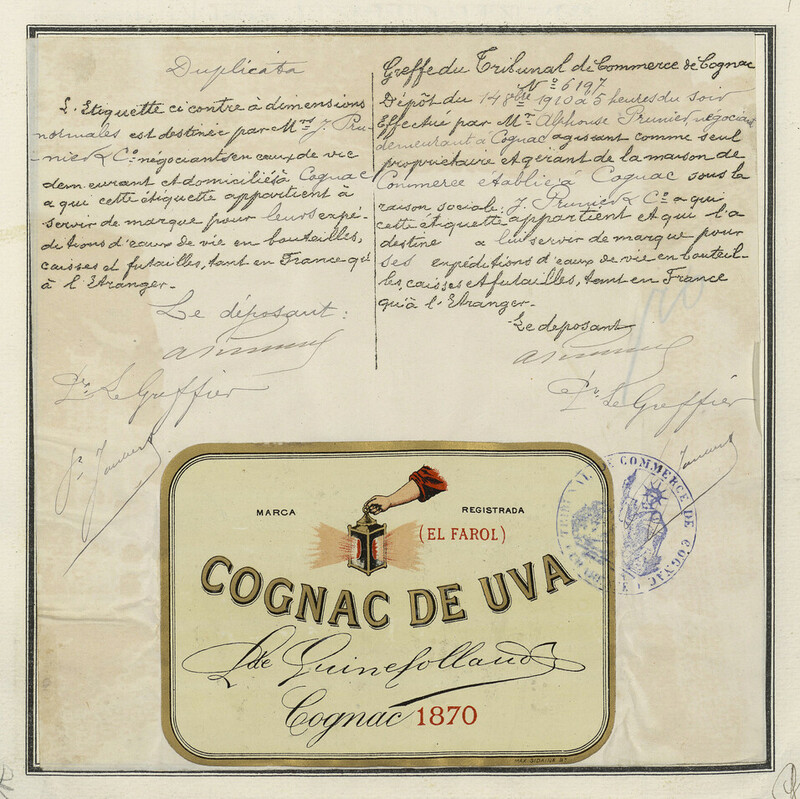 Duplicata
L'Etiquette ci contre à dimensions
normales est destinée par Mrs J. Pru-
-nier & Co négociants en eaux de vie
demeurant et domiciliés à Cognac
a qui cette étiquette appartient à
servir de marque pour leurs expé-
ditions d'eaux de vie en bouteilles,
caisses et futailles, tant en France qu'
à l'Etranger.-
Le déposant:
Pr. Le Greffier
Greffe du Tribunal de Commerce de Cognac
No 6197
Dépôt du 14 8bre 1910 à 5 heures du soir
Effectué par Mr. Alphonse Prunier, négociant
demeurant à Cognac agissant comme seul
propriétaire et gérant de la maison de
Commerce établie à Cognac sous la
raison sociale: J. Prunier & Co a qui
cette étiquette appartient et qui l'a
destine a lui servir de marque pour
ses expéditions d'eaux de vie en bouteil-
les, caisses et futailles, tant en France
qu'à l'Etranger.-
Le deposant
Pr. Le Greffier
MARCA REGISTRADA
(EL FAROL)
COGNAC DE UVA
Cognac 1870
TRIBUNAL DE COMMERCE DE COGNAC